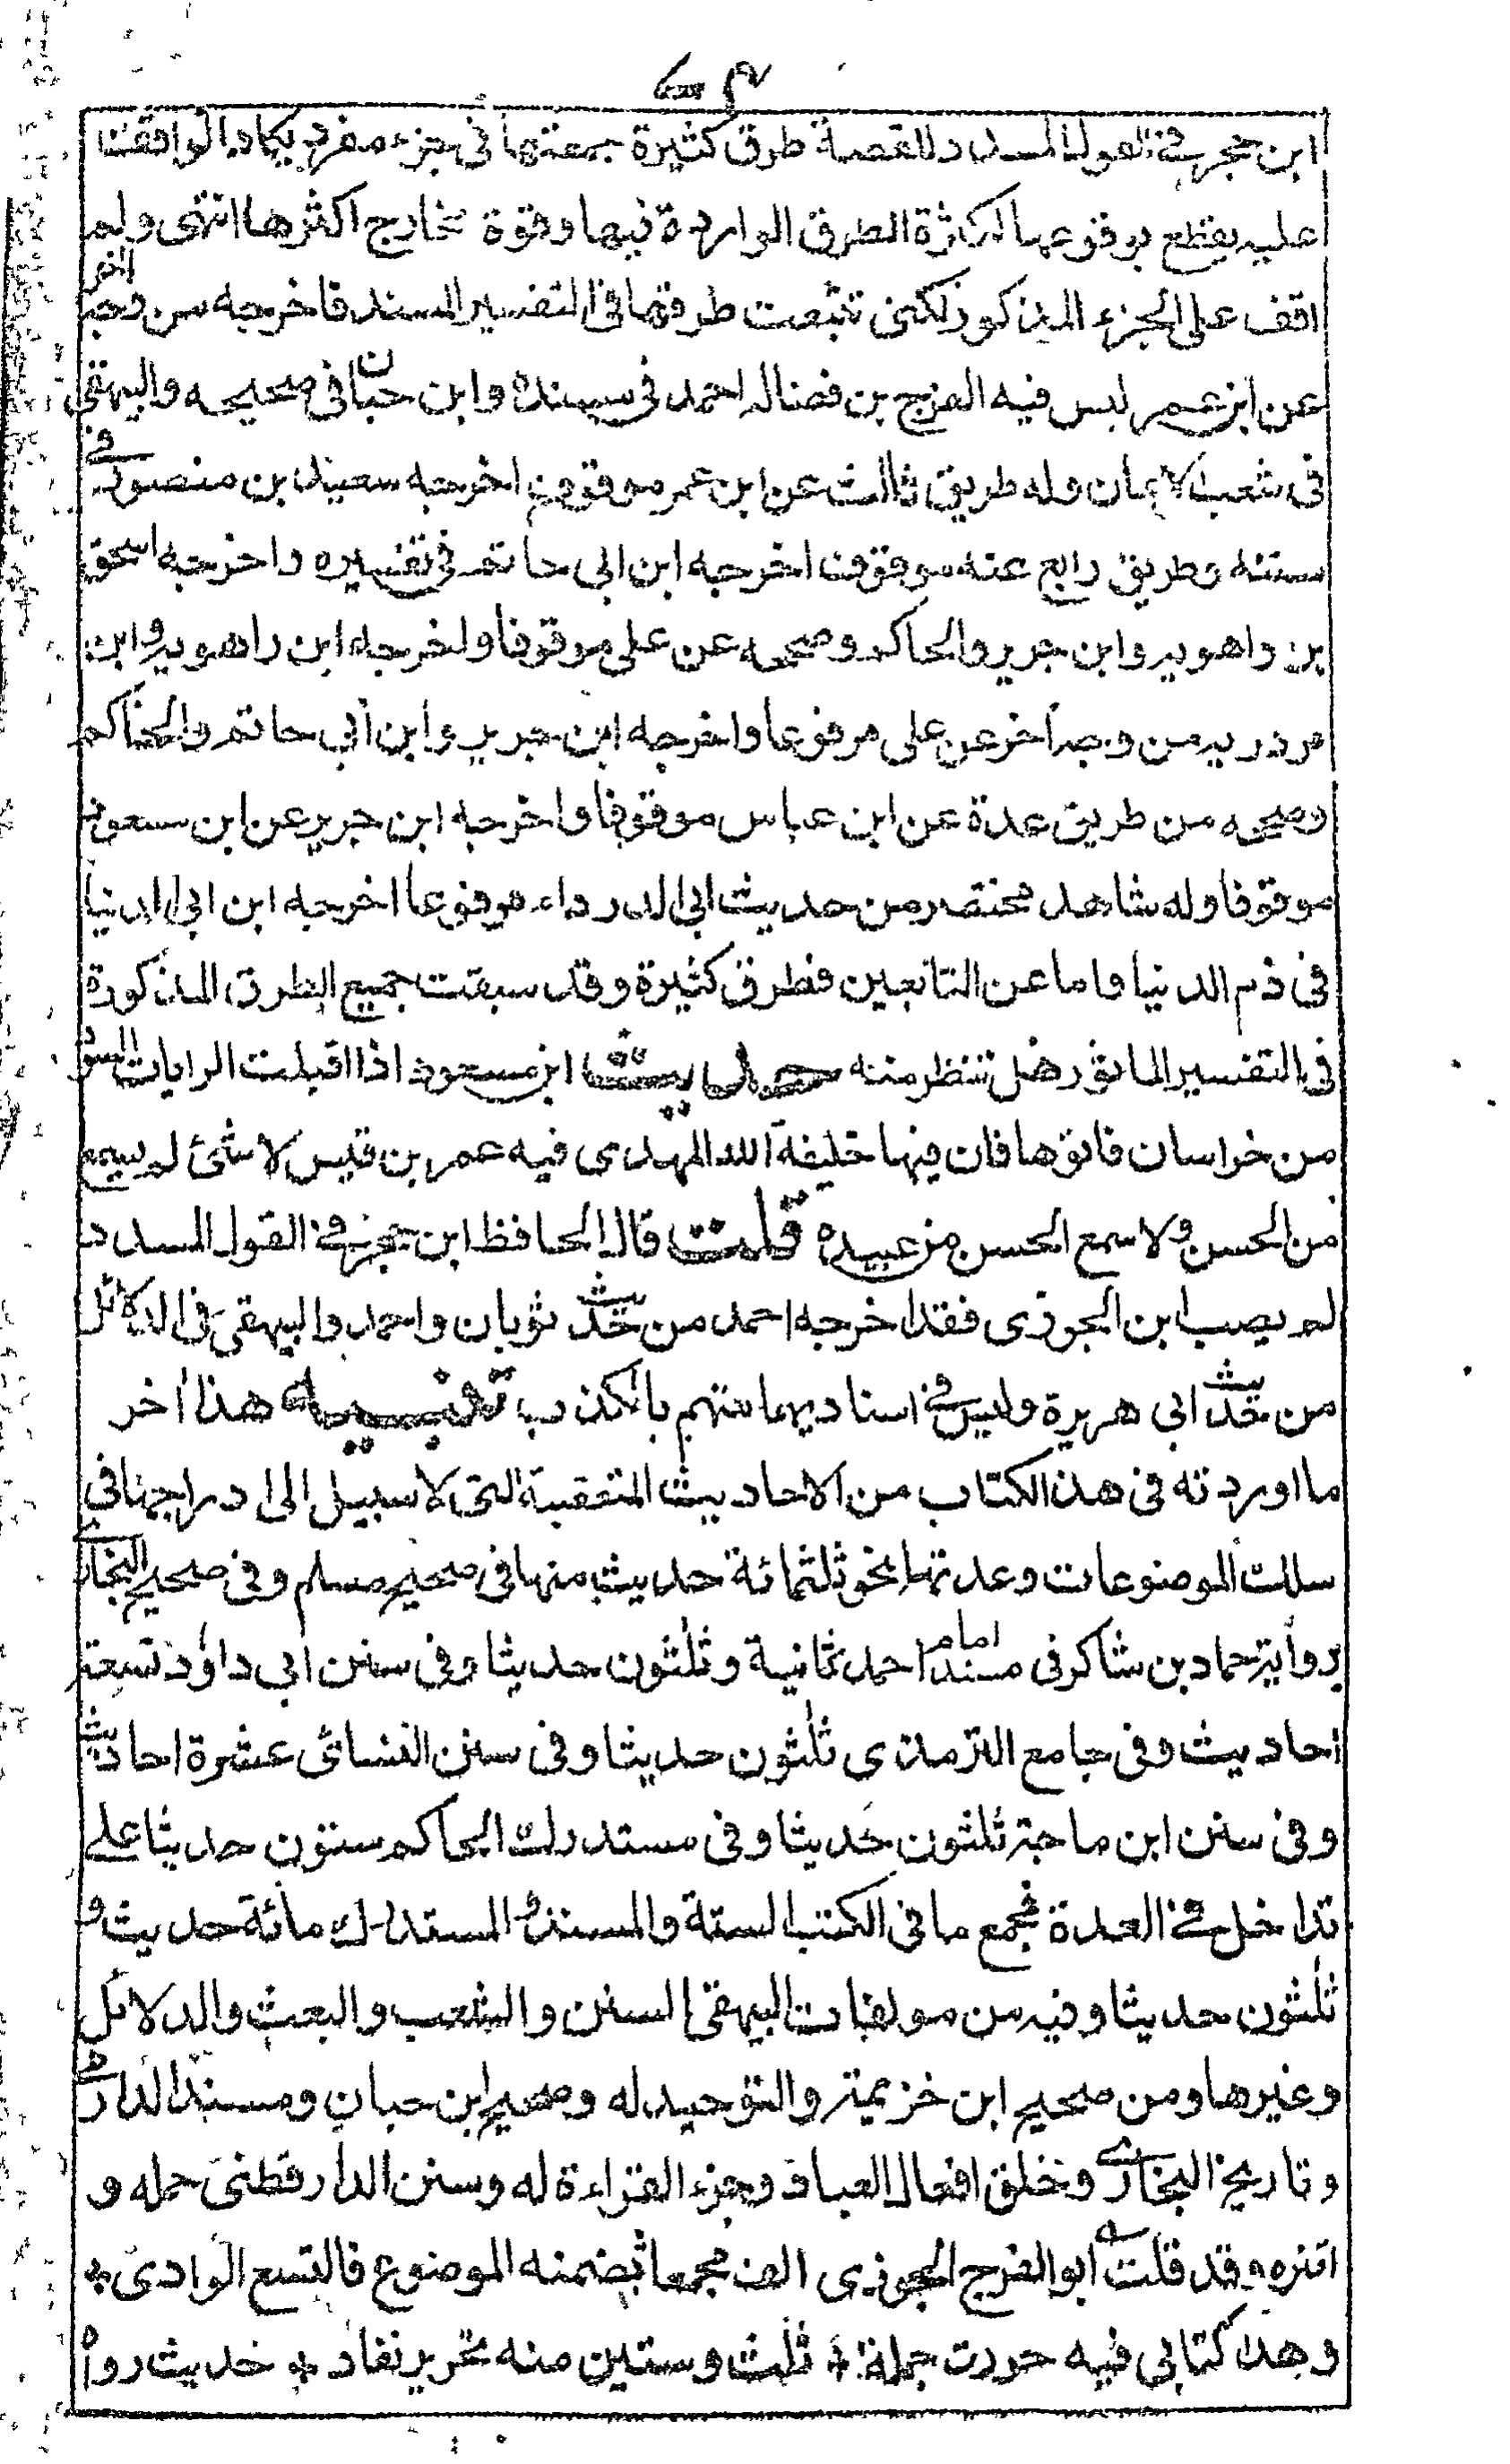 ابن حجر في القول المسدد للقصة طرق كثيرة جمعتها في جزء مفرد يكاد الواقف
عليه يقطع بوقوعها لكثرة الطرق الواردة فيها وقوة مخارج اكثرها انتهى ولم
اقف على الجزء المذكور لكني تتبعت طرقها في التفسير المسند فاخرجه من وجه اخر
عن ابن عمر ليس فيه الفرج بن فضالة احمد في مسنده وابن حبان في صحيحه والبيهقي
في شعب الايمان وله طريق ثالث عن ابن عمر موقوف اخرجه سعيد بن منصور في
سننه وطريق رابع عنه موقوف اخرجه ابن ابي حاتم في تفسيره واخرجه اسحق
بن راهويه وابن جرير والحاكم وصححه عن علي موقوفا واخرجه ابن راهويه وابن
مردويه من وجه اخر عن علي مرفوعا واخرجه ابن جرير وابن أبي حاتم والحاكم
وصححه من طريق عدة عن ابن عباس موقوفا واخرجه ابن جرير عن ابن مسعود
موقوفا وله شاهد مختصر من حديث ابي الدرداء مرفوعا اخرجه ابن ابي الدنيا
في ذم الدنيا واما عن التابعين فطرق كثيرة وقد سبقت جميع الطرق المذكورة
في التفسير الماثور فلتنظر منه حديث ابن مسعود اذا اقبلت الرايات السود
من خراسان فاتوها فان فيها خليفة الله المهدي فيه عمر بن قيس لا شئ لم يسمع
من الحسن ولا سمع الحسن من عبيدة قلت قال الحافظ ابن حجر في القول المسدد
لم يصب ابن الجوزي فقد اخرجه احمد من حديث ثوبان واحمد والبيهقي في الدلائل
من حديث ابي هريرة وليس في اسناديهما متهم بالكذب تنبيه هذا أخر
ما اوردته في هذا الكتاب من الاحاديث المتعقبة التي لا سبيل الى ادراجها في
سلك الموضوعات وعدتها نحو ثلثمائة حديث منها في صحيح مسلم وفي صحيح البخاري
برواية حماد بن شاكر في مسند امام احمد ثمانية وثلثون حديثا وفي سنن ابي داؤد تسعة
احاديث وفي جامع الترمذي ثلثون حديثا وفي سنن النسائي عشرة احاديث
وفي سنن ابن ماجة ثلثون حديثا وفي مستدرك الحاكم ستون حديثا على
تداخل في العدة فجمع ما في الكتب الستة والمسند والمستدرك مائة حديث و
ثلثون حديثا وفيه من مولفات البيهقي السنن والشعب والبعث والدلائل
وغيرها ومن صحيح ابن خزيمة والتوحيد له وصحيح ابن حبان ومسند الدارمي
وتاريخ البخاري وخلق افعال العباد وجزء القراءة له وسنن الدارقطني جمله و
وقد قلت ابو الفرج الجوزي الف مجمعا تضمنه الموضوع فالتسع الوادي *
وهذا كتابي فيه حررت جملة * ثلث وستين منه تحرير نقاد * حديث رواه